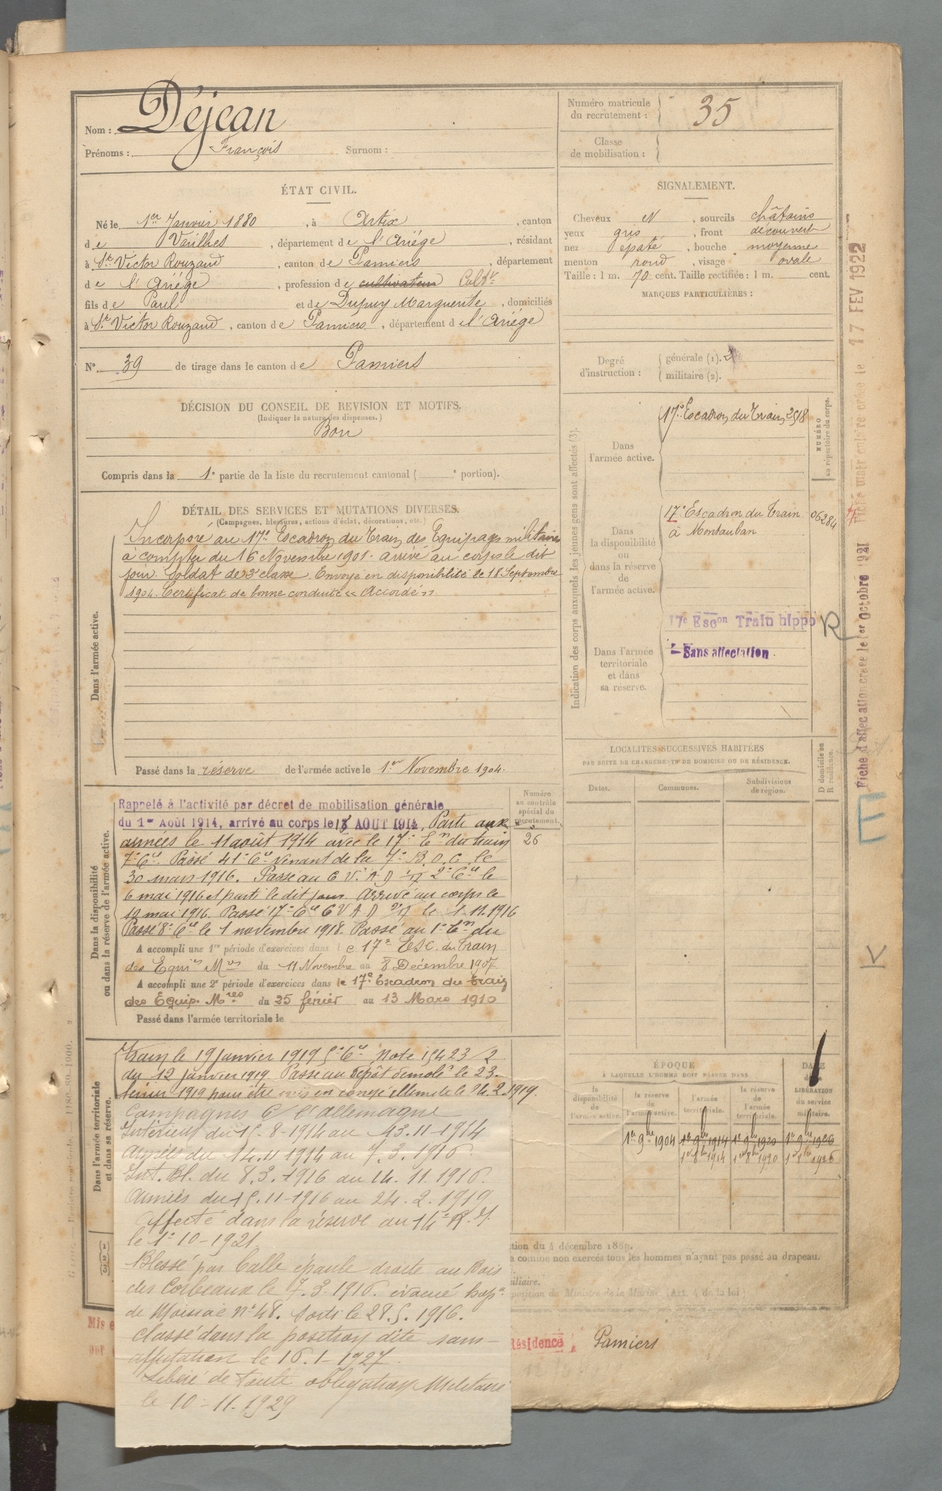 Nom : Déjean
Prénoms : François Surnom :
Numéro matricule du recrutement : 35
Classe de mobilisation :
ÉTAT CIVIL.
Né le 1er Janvier 1880, à Artix, canton
de Varilhes, département de l'Ariége, résidant
à St Victor Rouzaud, canton de Pamiers, département
de l'Ariége, profession de cultivateur Cultr
fils de Paul et de Dupuy Marguerite, domiciliés
à St Victor Rouzaud, canton de Pamiers, département de l'Ariége
N° 39 de tirage dans le canton de Pamiers
SIGNALEMENT.
Cheveux N, sourcils châtains
yeux gris, front découvert
nez épaté, bouche moyenne
menton rond, visage ovale
Taille : 1 m. 70 cent. Taille rectifiée : 1 m. cent.
MARQUES PARTICULIÈRES :
Degré d'instruction : générale (1).
militaire (2).
DÉCISION DU CONSEIL DE REVISION ET MOTIFS.
(Indiquer la nature des dispenses.)
Bon
Compris dans la 1e partie de la liste du recrutement cantonal ( e portion).
DÉTAIL DES SERVICES ET MUTATIONS DIVERSES.
(Campagnes, blessures, actions d'éclat, décorations, etc.)
Dans l'armée active.
Incorporé au 17e Escadron du Train des Equipages militaires
à compter du 16 Novembre 1901. arrivé au corps le dit
jour Soldat de 2e classe. Envoyé en disponibilité le 18 Septembre
1904. Certificat de bonne conduite « Accordé ».
Passé dans la réserve de l'armée active le 1er Novembre 1904
Indication des corps auxquels les jeunes gens sont affectés (3).
NUMÉRO au répertoire du corps.
Dans l'armée active.
17e Escadron du Train 398
Dans la disponibilité ou dans la réserve de l'armée active.
17e Escadron du Train 06284
à Montauban
Dans l'armée territoriale et dans sa réserve.
17e Escon Train hippo R
Sans affectation
LOCALITÉS SUCCESSIVES HABITÉES
PAR SUITE DE CHANGEMENTS DE DOMICILE OU DE RÉSIDENCE.
D domicile ou R résidence.
Dates. Communes. Subdivisions de région.
Dans la disponibilité ou dans la réserve de l'armée active.
Numéro au contrôle spécial du recrutement.
26
Rappelé à l'activité par décret de mobilisation générale
du 1er Août 1914, arrivé au corps le AOUT 1914, Parti aux
armées le 11 août 1914 avec le 17e Em du train
7e Cie. Passé 41e Cie venant de la B.O.C. le
30 mars 1916. Passé au C V A D 2e Cie le
6 mai 1916 et parti le dit jour. Arrivé au corps le
10 mai 1916. Passé 17e Cie C V A D le 1.11.1916
Passé 8e Cie le 1 novembre 1918. Passé au 1e Em du
A accompli une 1re période d'exercices dans le 17e Esc. du Train
des Equies Mres du 11 Novembre au 8 Décembre 1907
A accompli une 2e période d'exercices dans le 17e Escadron du Train
des Equip. Mres du 25 février au 13 Mars 1910
Passé dans l'armée territoriale le
Dans l'armée territoriale et dans sa réserve.
train le 19 janvier 1919 5e Cie Note 15423/2
du 12 janvier 1919. Passé au dépôt démobr le 23
février 1919 pour être mis en congé illimité le 24.2.1919.
Campagnes C/ l'allemagne
Intérieur du 15.8-1914 au 13.11-1914
Armées du 14.11 1914 au 7.3.1916
Int. Bl. du 8.3.1916 au 14.11.1916.
Armées du 15.11-1916 au 24.2.1919
Affecté dans la réserve au 14e R.I
le 1e 10-1921
Blessé par balle épaule droite au Bois
des Corbeaux le 7.3-1916. évacué hop.
de Moissac n° 48. Sorti le 28.5.1916.
Classé dans la position dite sans
affectation le 16.1-1927.
Libéré de toute obligation Militaire
le 10-11.1929
ÉPOQUE
À LAQUELLE L'HOMME DOIT PASSER DANS
la disponibilité de l'armée active.
la réserve de l'armée active.
l'armée territoriale.
la réserve de l'armée territoriale.
DATE
de la LIBÉRATION du service militaire.
1er 9bre 1904 1er 9bre 1914 1er 9bre 1920 1er 9bre 1926
tion du 4 décembre 1889.
comme non exercés tous les hommes n'ayant pas passé au drapeau.
Résidence Pamiers
Fiche d'affectation créée le 1er Octobre 1921
Fiche matriculaire créée le 17 FEV 1922